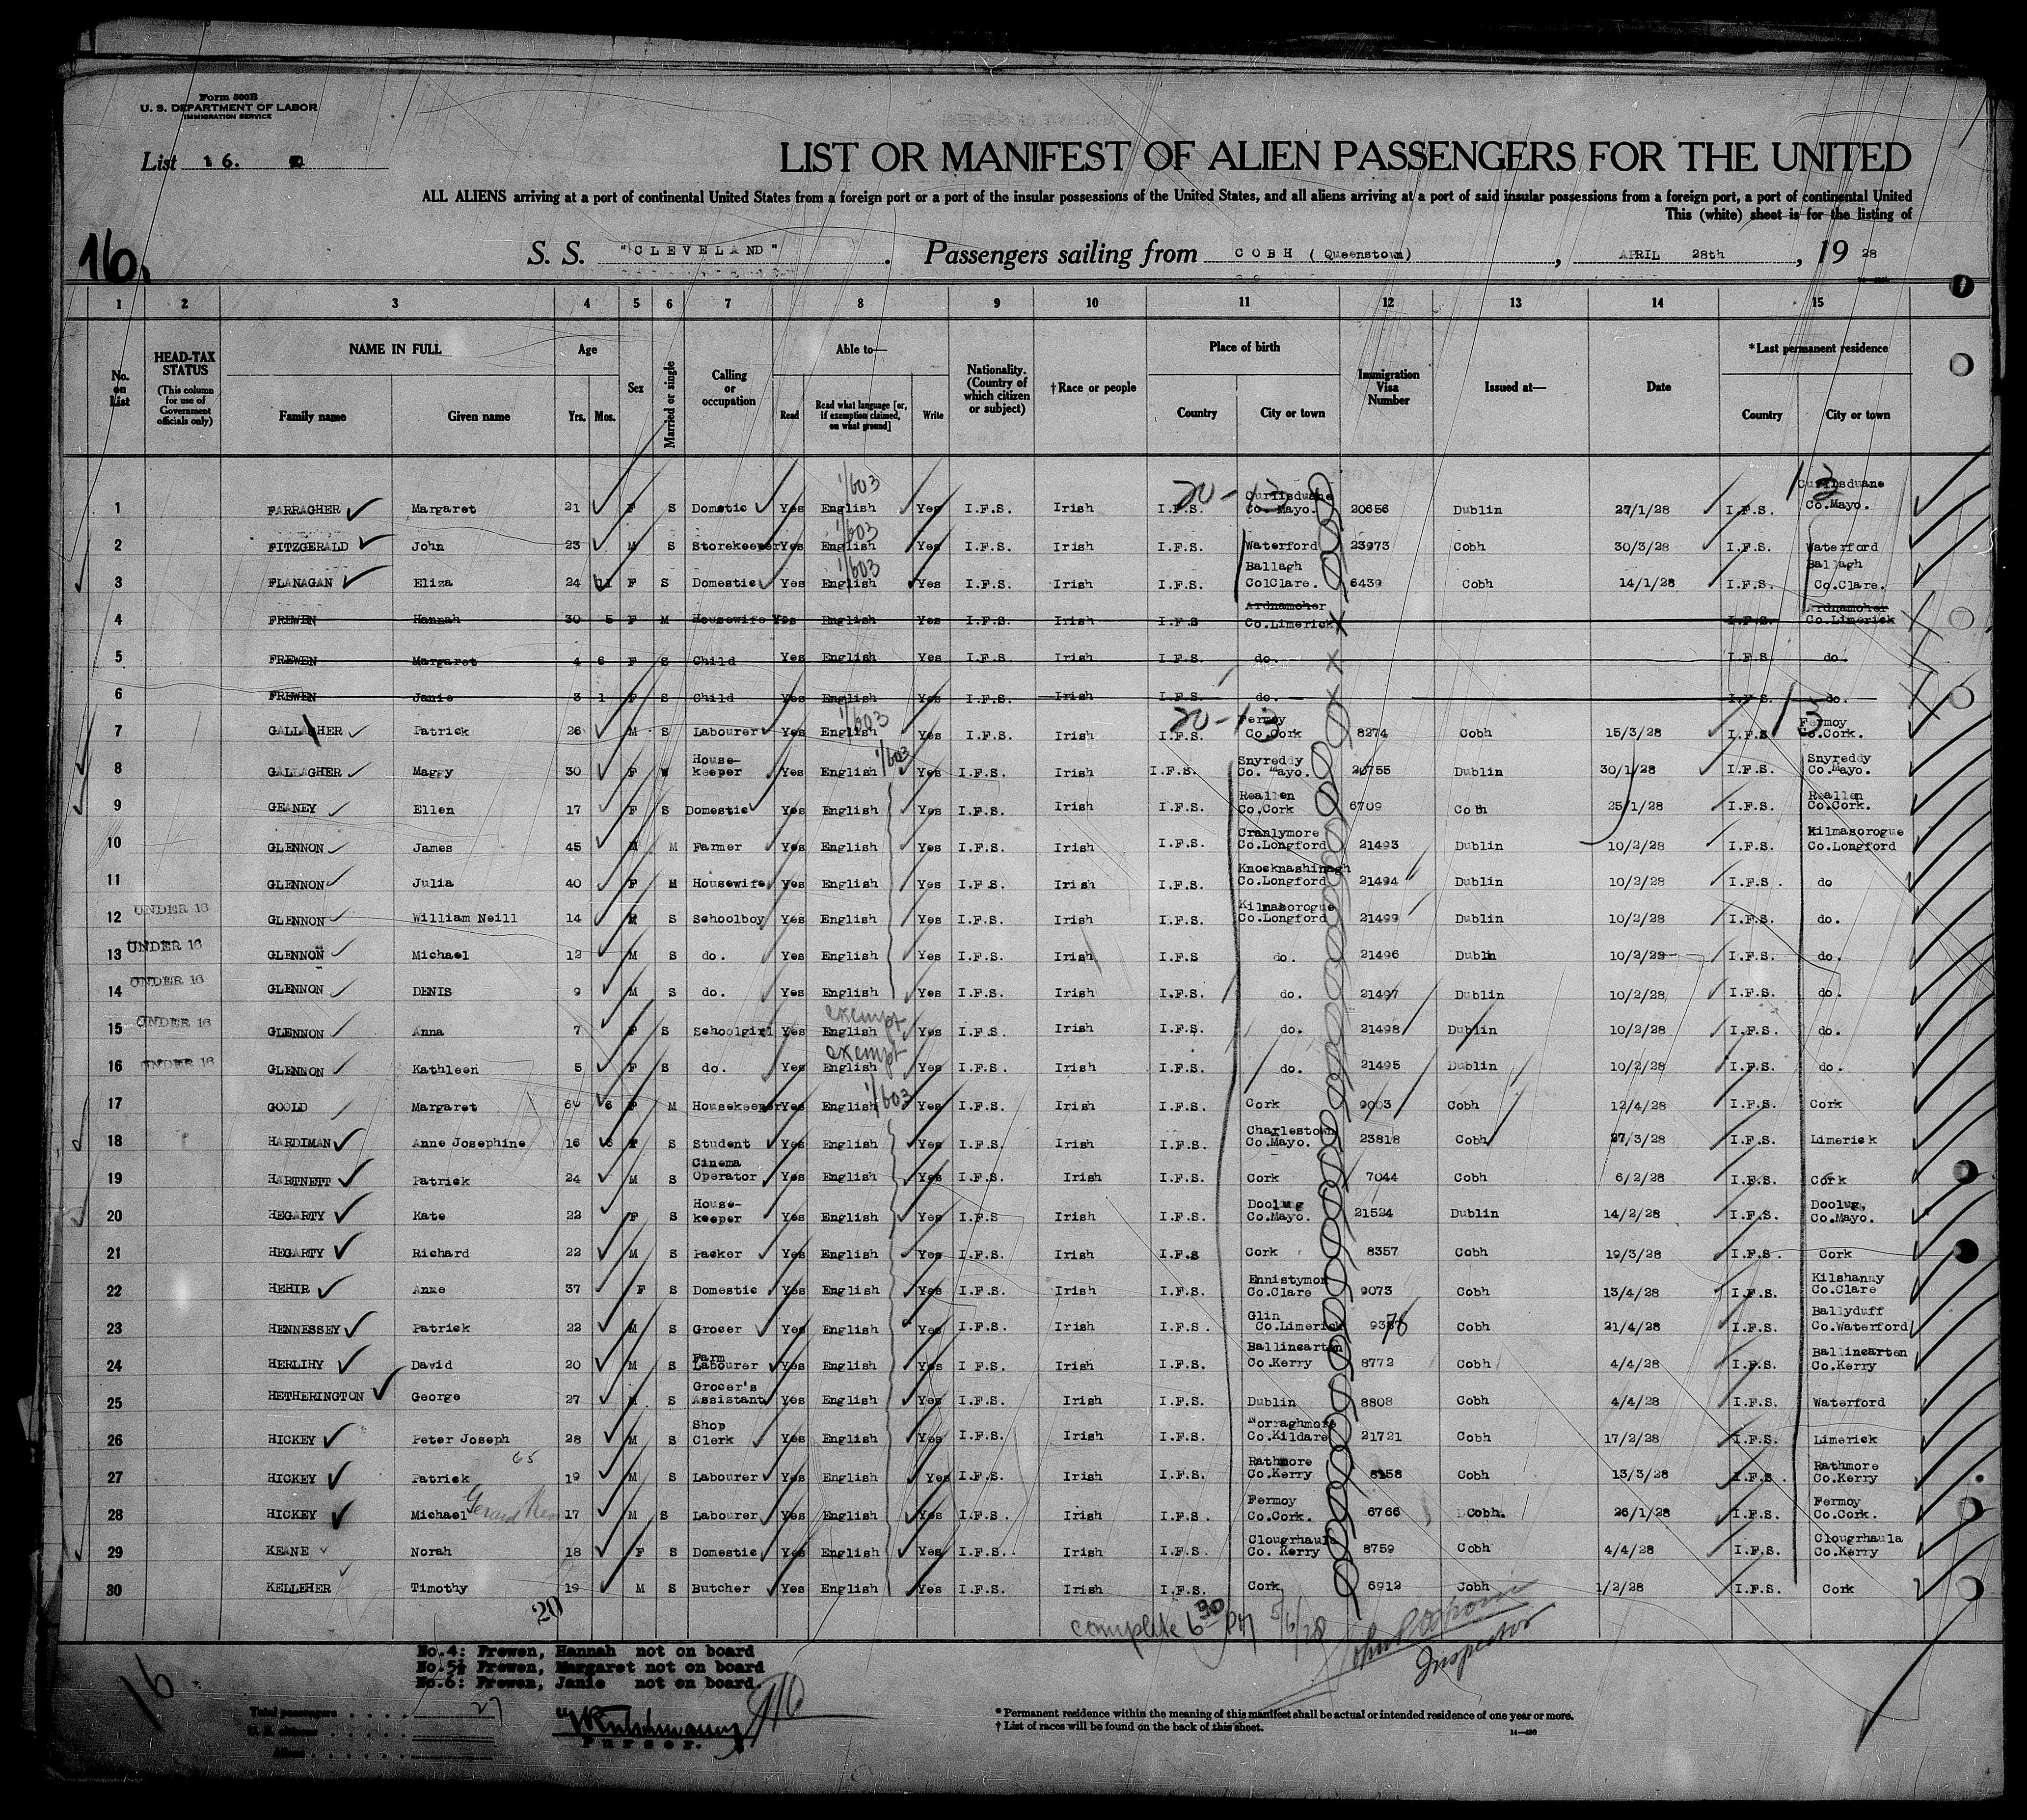 Form 500B
U. S. DEPARTMENT OF LABOR
IMMIGRATION SERVICE
List 16.
LIST OR MANIFEST OF ALIEN PASSENGERS FOR THE UNITED
ALL ALIENS arriving at a port of continental United States from a foreign port or a port of the insular possessions of the United States, and all aliens arriving at a port of said insular possessions from a foreign port, a port of continental United
This (white) sheet is for the listing of
16.
S. S. "CLEVELAND". Passengers sailing from COBH (Queenstown), APRIL 28th, 1928
1 2 3 4 5 6 7 8 9 10 11 12 13 14 15
No. on List
HEAD-TAX STATUS (This column for use of Government officials only)
NAME IN FULL
Family name Given name
Age
Yrs. Mos.
Sex
Married or single
Calling or occupation
Able to—
Read
Read what language [or, if exemption claimed, on what ground]
Write
Nationality. (Country of which citizen or subject)
†Race or people
Place of birth
Country City or town
Immigration Visa Number
Issued at—
Date
*Last permanent residence
Country City or town
1 FARRAGHER Margaret 21 F S Domstic Yes English Yes I.F.S. Irish I.F.S. Curilsduane Co. Mayo. 20656 Dublin 27/1/28 I.F.S. Curilsduane Co.Mayo.
2 FITZGERALD John 23 M S Storekeeper Yes English Yes I.F.S. Irish I.F.S. Waterford 23973 Cobh 30/3/28 I.F.S. Waterford
3 FLANAGAN Eliza 24 11 F S Domestic Yes English Yes I.F.S. Irish I.F.S. Ballagh ColClare. 6439 Cobh 14/1/28 I.F.S. Ballagh Co.Clare.
4 FREWEN Hannah 30 5 F M Housewife Yes English Yes I.F.S. Irish I.F.S Ardnamoher Co.Limerick I.F.S. Ardnamoher Co.Limerick
5 FREWEN Margaret 4 6 F S Child Yes English Yes I.F.S. Irish I.F.S. do. I.F.S. do.
6 FREWEN Janie 3 1 F S Child Yes English Yes I.F.S. Irish I.F.S. do. I.F.S. do.
7 GALLAGHER Patrick 26 M S Labourer Yes English Yes I.F.S. Irish I.F.S. Fermoy Co.Cork 8274 Cobh 15/3/28 I.F.S Fermoy Co.Cork.
8 GALLAGHER Maggy 30 F W House-keeper Yes English Yes I.F.S. Irish I.F.S. Snyreddy Co. Mayo. 20755 Dublin 30/1/28 I.F.S. Snyreddy Co.Mayo.
9 GEANEY Ellen 17 F S Domestic Yes English Yes I.F.S. Irish I.F.S. Reallen Co.Cork 6709 Cobh 25/1/28 I.F.S. Reallen Co.Cork.
10 GLENNON James 45 M M Farmer Yes English Yes I.F.S. Irish I.F.S. Cranlymore Co.Longford 21493 Dublin 10/2/28 I.F.S. Kilmasorogue Co.Longford
11 GLENNON Julia 40 F M Housewife Yes English Yes I.F.S. Irish I.F.S. Knocknashinagh Co.Longford 21494 Dublin 10/2/28 I.F.S. do
12 UNDER 16 GLENNON William Neill 14 M S Schoolboy Yes English Yes I.F.S. Irish I.F.S. Kilmasorogue Co.Longford 21499 Dublin 10/2/28 I.F.S. do.
13 UNDER 16 GLENNON Michael 12 M S do. Yes English Yes I.F.S. Irish I.F.S do. 21496 Dublin 10/2/28 I.F.S. do.
14 UNDER 16 GLENNON DENIS 9 M S do. Yes English Yes I.F.S. Irish I.F.S. do. 21497 Dublin 10/2/28 I.F.S. do.
15 UNDER 16 GLENNON Anna 7 F S Schoolgirl Yes exempt English Yes I.F.S. Irish I.F.S. do. 21498 Dublin 10/2/28 I.F.S. do.
16 UNDER 16 GLENNON Kathleen 5 F S do. Yes exempt English Yes I.F.S. Irish I.F.S. do. 21495 Dublin 10/2/28 I.F.S. do.
17 GOOLD Margaret 6 F M Housekeeper Yes English Yes I.F.S. Irish I.F.S. Cork 9003 Cobh 12/4/28 I.F.S. Cork
18 HARDIMAN Anne Josephine 16 6 F S Student Yes English Yes I.F.S. Irish I.F.S. Charlestown Co.Mayo. 23818 Cobh 27/3/28 I.F.S. Limerick
19 HARTNETT Patrick 24 M S Cinema Operator Yes English Yes I.F.S. Irish I.F.S. Cork 7044 Cobh 6/2/28 I.F.S. Cork
20 HEGARTY Kate 22 F S House-keeper Yes English Yes I.F.S Irish I.F.S. Doolug Co.Mayo. 21524 Dublin 14/2/28 I.F.S. Doolug, Co.Mayo.
21 HEGARTY Richard 22 M S Packer Yes English Yes I.F.S. Irish I.F.S Cork 8357 Cobh 19/3/28 I.F.S. Cork
22 HEHIR Anne 37 F S Domestic Yes English Yes I.F.S. Irish I.F.S. Ennistymon Co.Clare 9073 Cobh 13/4/28 I.F.S. Kilshanny Co.Clare
23 HENNESSEY Patrick 22 M S Grocer Yes English Yes I.F.S. Irish I.F.S. Glin Co.Limerick 93 76 Cobh 21/4/28 I.F.S. Ballyduff Co.Waterford
24 HERLIHY David 20 M S Farm Labourer Yes English Yes I F.S. Irish I.F.S. Ballincarten Co.Kerry 8772 Cobh 4/4/28 I.F.S. Ballincarten Co.Kerry
25 HETHERINGTON George 27 M S Grocer's Assistant Yes English Yes I.F.S. Irish I.F.S. Dublin 8808 Cobh 4/4/28 I.F.S. Waterford
26 HICKEY Peter Joseph 28 M S Shop Clerk Yes English Yes I.F.S. Irish I.F.S. Norraghmore Co.Kildare 21721 Cobh 17/2/28 I.F.S. Limerick
27 HICKEY Patrick 19 M S Labourer Yes English Yes I.F.S. Irish I.F.S. Rathmore Co.Kerry 8158 Cobh 13/3/28 I.F.S. Rathmore Co.Kerry
28 HICKEY Michael Gerard 17 M S Labourer Yes English Yes I.F.S. Irish I.F.S. Fermoy Co.Cork. 6766 Cobh. 26/1/28 I.F.S. Fermoy Co.Cork.
29 KEANE Norah 18 F S Domestic Yes English Yes I.F.S. Irish I.F.S. Clougrhaula Co. Kerry 8759 Cobh 4/4/28 I.F.S. Clougrhaula Co.Kerry
30 KELLEHER Timothy 19 M S Butcher Yes English Yes I.F.S. Irish I.F.S. Cork 6912 Cobh 1/2/28 I.F.S. Cork
20
complete 6 30 PM 5/6/28
Inspector
No.4: Frewen, Hannah not on board
No.5: Frewen, Margaret not on board
No.6: Frewen, Janie not on board.
16
Total passengers 27
U. S. citizens
Aliens
Purser.
* Permanent residence within the meaning of this manifest shall be actual or intended residence of one year or more.
† List of races will be found on the back of this sheet.